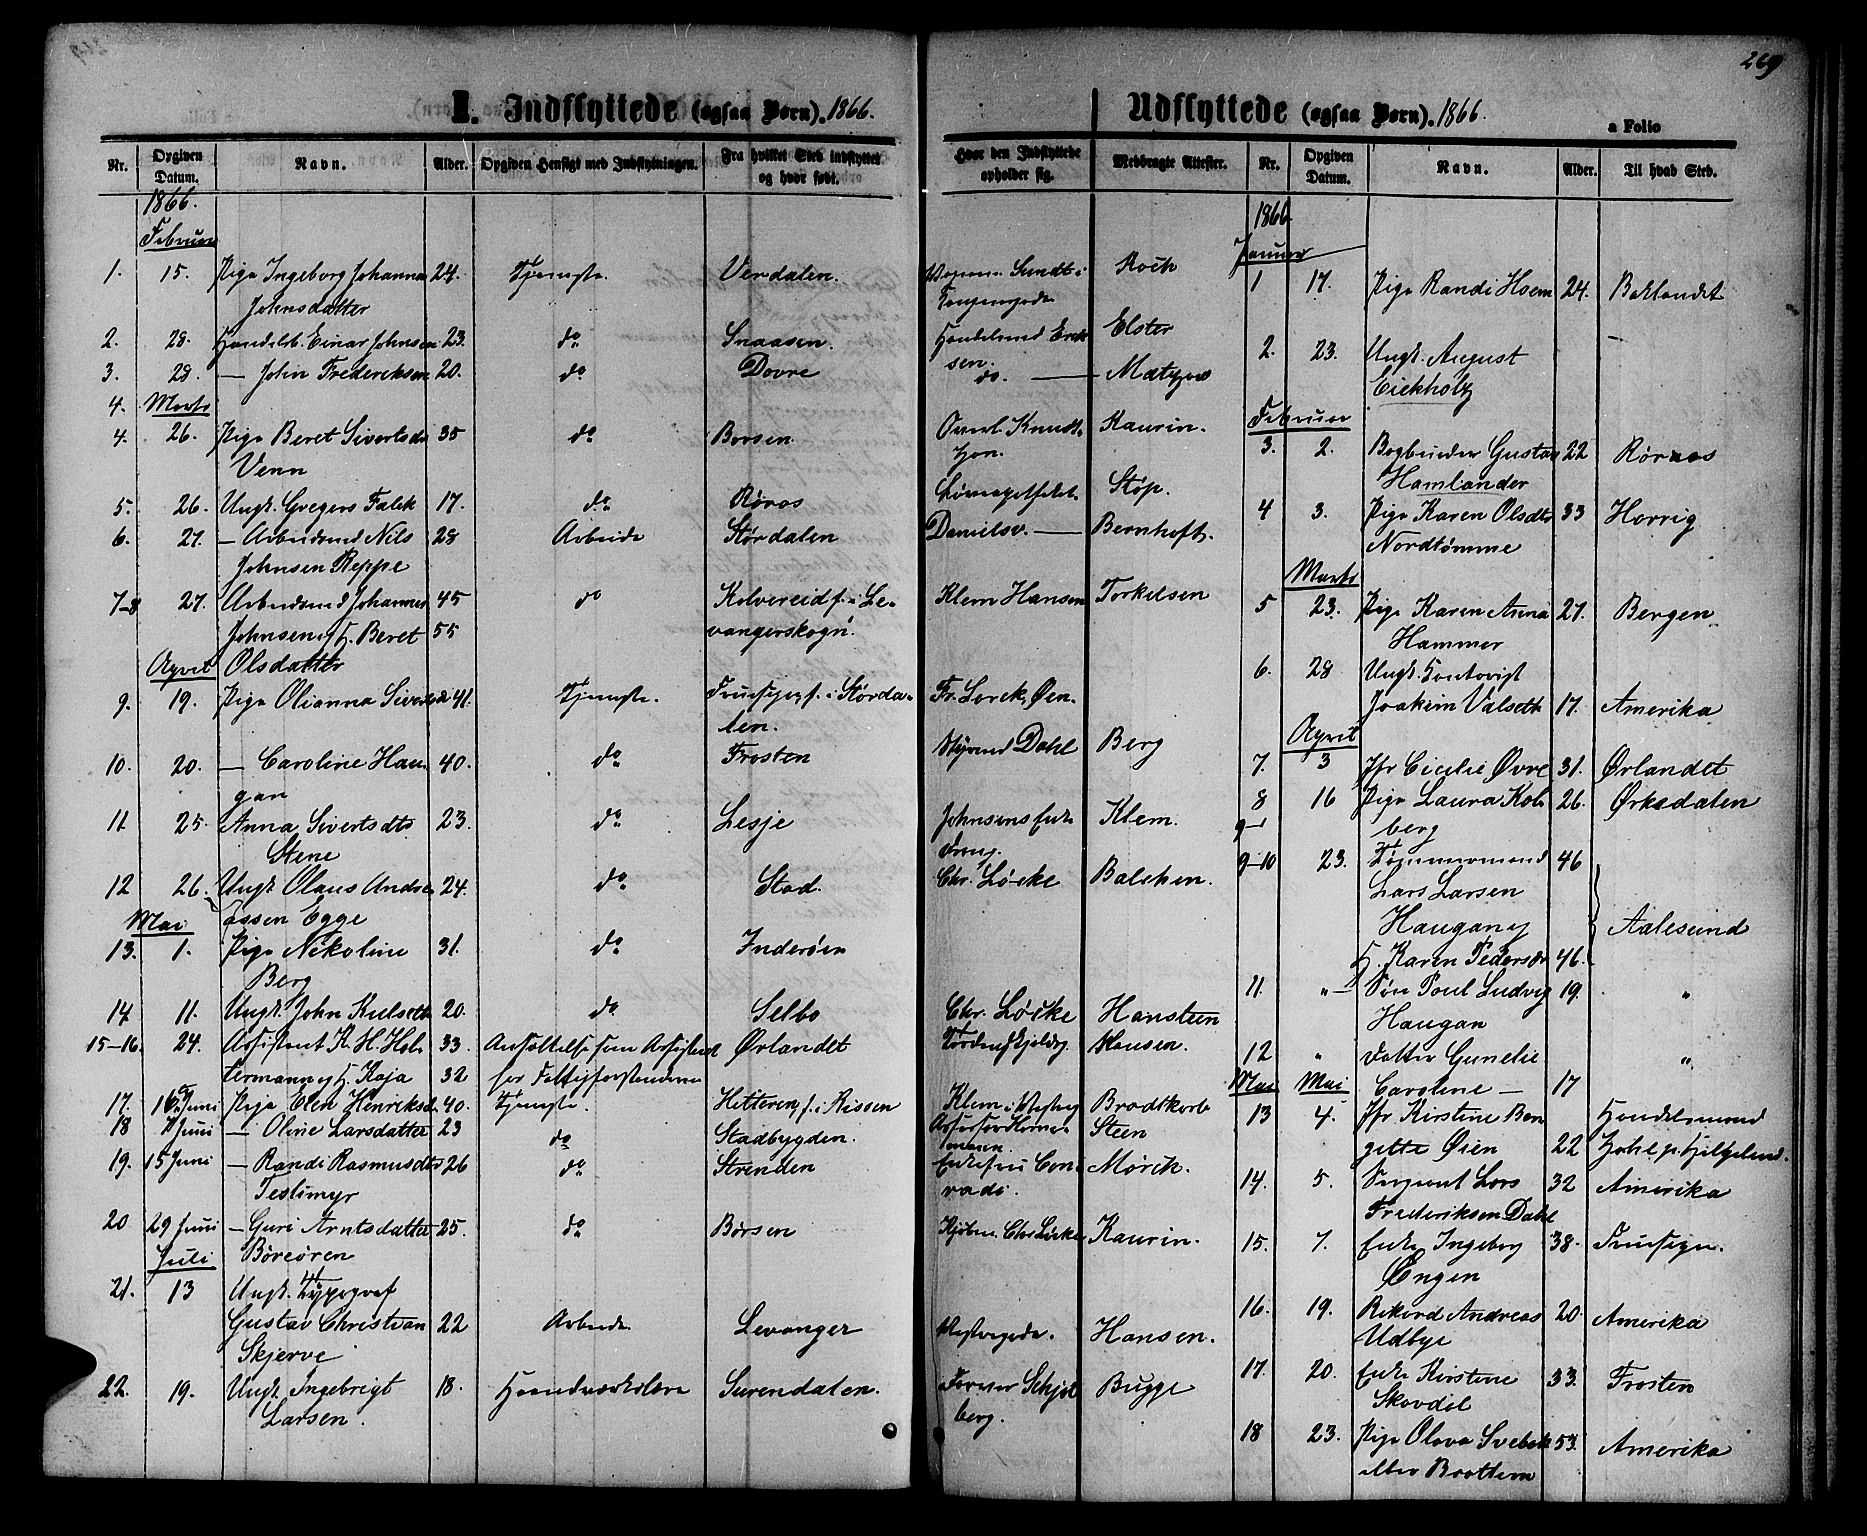 269
I. Indflyttede (ogsaa Børn). 1866.
Nr. Opgiven Datum. Navn. Alder. Opgiven Hensigt med Indflytningen. Fra hvilket Sted indflyttet og hvor født.
1866.
Februar
1. 15. Pige Ingeborg Johanna 24. Tjeneste. Verdalen.
Johnsdatter
2. 28. Handelsb. Einar Johnsen 23. do Snaasen.
3. 28. — John Frederiksen 20. do Dovre
4. Marts
4. 26. Pige Beret Sivertsdr 35 do Børsen.
Venn
5. 26. Ungk. Gregers Falck 17. do Røros
6. 27. — Arbeidsmd Nils 28 Arbeide Størdalen
Johnsen Reppe
7-8 27. Arbeidsmd Johannes 45 do Kolvereid f. i Le-
Johnsen og H. Beret 55 vangerskogn.
April Olsdatter
9. 19. Pige Olianna Sivertsd 41. Tjeneste. f. i Størda-
len.
10. 20. — Caroline Hau- 40. do Frosten
gan
11 25. Anna Sivertsdtr 23. do Lesje
Stene
12 26. Ungk. Olaus Andre- 24. do Stod.
Mai assen Egge
13. 1. Pige Nikoline 31. do Inderøen
Berg
14 11. Ungk. John Kulseth 20. do Selbo
15-16. 24. Assistent K. H. Hol- 33. Ansættelse som Assistent Ørlandet
termann og H. Kaja 32 for
17. Juni Pige Elen Henriksd. 40. Tjeneste. Hitteren, f. i Rissen
18 7 Juni — Oline Larsdatter 23 do Stadbygden.
19. 15 Juni — Randi Rasmusdtr 26 do Strinden
Teslimyr
20 29 Juni — Guri Arntsdatter 25. do Børsen
Juli Børeøren
21. 13 Ungk. Typograf
Gustav Christian 22 Arbeide Levanger
Skjerve
22. 19. Ungk. Ingebrigt 18. Haandværkslære Surendalen.
Larsen.
Hvor den Indflyttede opholder sig. Medbragte Attester.
Sundts i Koch
Kongensgade
Handelsmd Erik- Elster
sen.
do. —
Overl. Knudt- Kaurin.
zon.
Støp.
Danielsv. — Bernhoft.
Klem Hansen Torkelsen
Fr. Lorck, Øen.
Styrmd Dahl Berg
Johnsens Enke Klem.
Chr. Løcke Balchen.
Chr. Løcke Hansteen
Tordenskjoldsg. Hansen.
Klem i Brodtkorb
Steen
Enkefru Con- Mørch.
radi.
Kjøbm. Chr Løcke Kaurin.
Hansen.
Farver Schjøl- Bugge
berg.
Udflyttede (ogsaa Børn). 1866.
a Folio
Nr. Opgiven Datum. Navn. Alder. Til hvad Sted.
1866
Januar
1 17. Pige Randi Hoem 24. Baklandet
2. 23. Ungk. August —
Eickholtz
Februar
3. 2. Bogbinder Gustav 22 Røraas
Hamlander
4 3. Pige Karen Olsdtr 33 Horrig
Nordtømme
Marts
5 23. Pige Karen Anna 27. Bergen
Hammer
6. 28 Ungk.
Joakim Valseth 17. Amerika
April
7. 3 Jfr Cicilie Øvre 31. Ørlandet
8 16 Pige Laura Kol- 26. Ørkedalen
9-1 berg
9-10 23. Tømmermand 46
Lars Larsen
Haugan og Aalesund
H. Karen Pedersdr 46.
11. „ — Søn Poul Ludvig 19. „
Haugan
12 „ Datter Gunelie „
Mai Mai Caroline — 17
13 4. Jfr Kirstine Ben- Handelsmand
gitte Øien 22
14. 5. Sergeant Lars 32 Amerika
Frederiksen Dahl
15. 7. Enke Ingeborg 38.
Engen
16. 19. Rekord Andreas 20. Amerika
Udbye
17. 20. Enke Kirstine 33. Frosten
Skavdal
18 23. Pige Olava 53. Amerika
eller Brottem